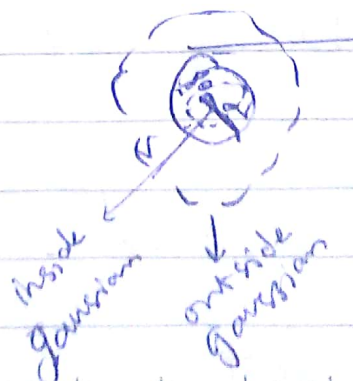 inside
gaussian
outside
gaussian